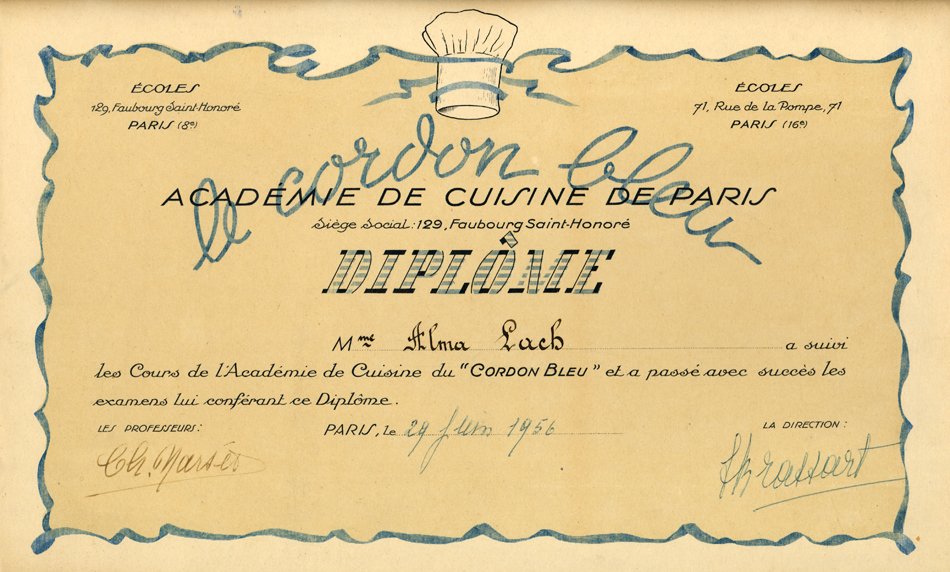 ÉCOLES
129, Faubourg Saint-Honoré
PARIS (8e)
ÉCOLES
71, Rue de la Pompe, 71
PARIS (16e)
le cordon bleu
ACADÉMIE DE CUISINE DE PARIS
Siège Social : 129, Faubourg Saint-Honoré
DIPLÔME
Mme Alma Lach a suivi
les Cours de l'Académie de Cuisine du "CORDON BLEU" et a passé avec succès les
examens lui conférant ce Diplôme.
LES PROFESSEURS :
PARIS, le 29 Juin 1956
LA DIRECTION :